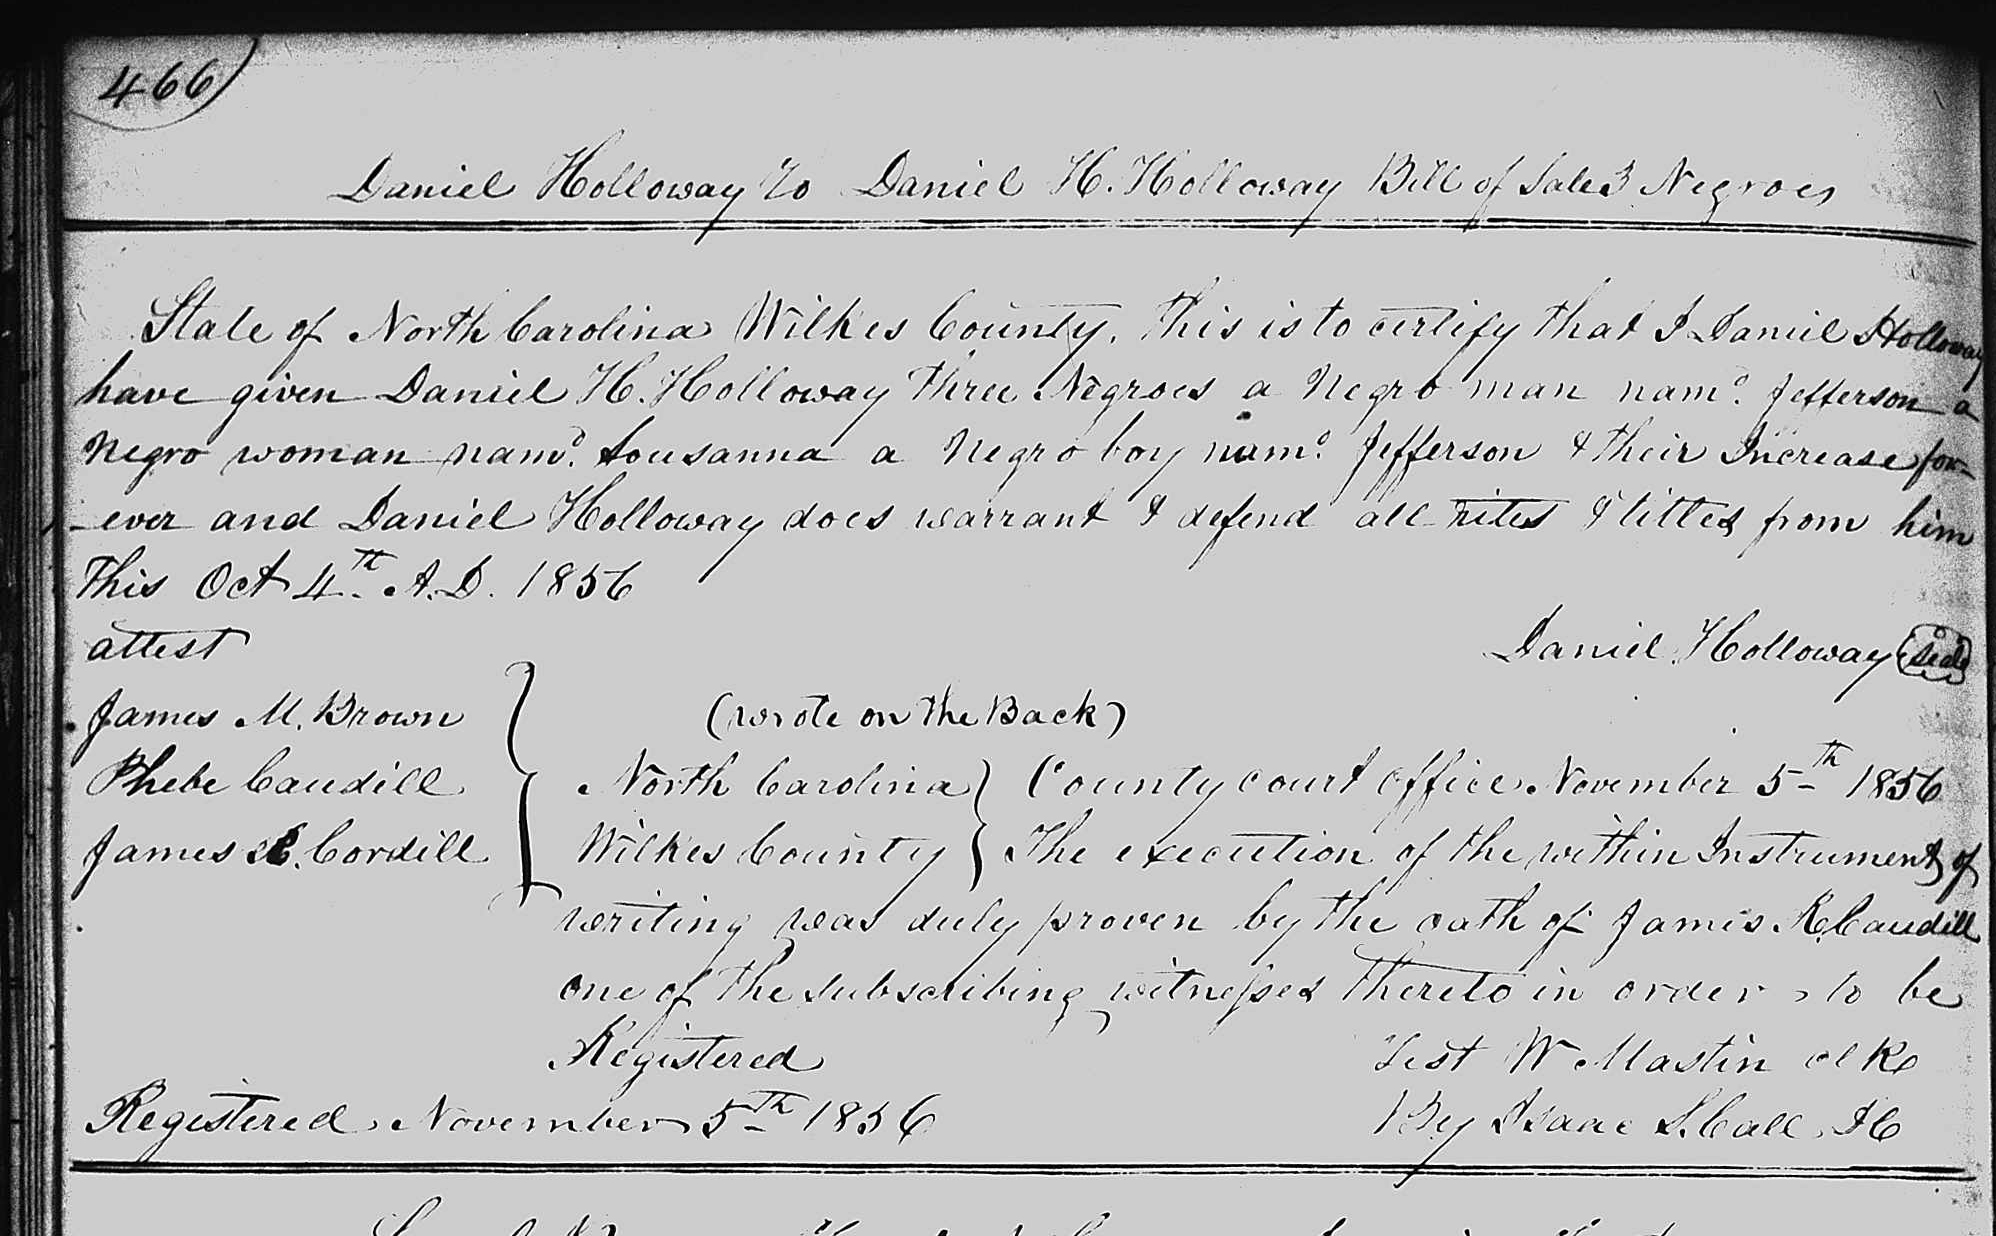 466
Daniel Holloway To Daniel H. Holloway Bill of Sale 3 Negroes
State of North Carolina Wilkes County. This is to certify that I Daniel Holloway
have given Daniel H. Holloway Three Negroes a Negro man namd. Jefferson a
Negro woman namd. Sousanna a Negro boy namd. Jefferson & their Increase for-
-ever and Daniel Holloway does warrant & defend all rites & tittes from him
This Oct 4th A.D. 1856
attest
Daniel Holloway seal
James M. Brown
(wrote on the Back)
Phebe Caudill
North Carolina } County court office November 5th 1856
James Cordill
Wilkes County } The execution of the within Instrument of
writing was duly proven by the oath of James R. Caudill
one of the subscribing witnesses thereto in order to be
Registered
Test W Mastin clk
Registered November 5th 1856
By Isaac S. Call DC